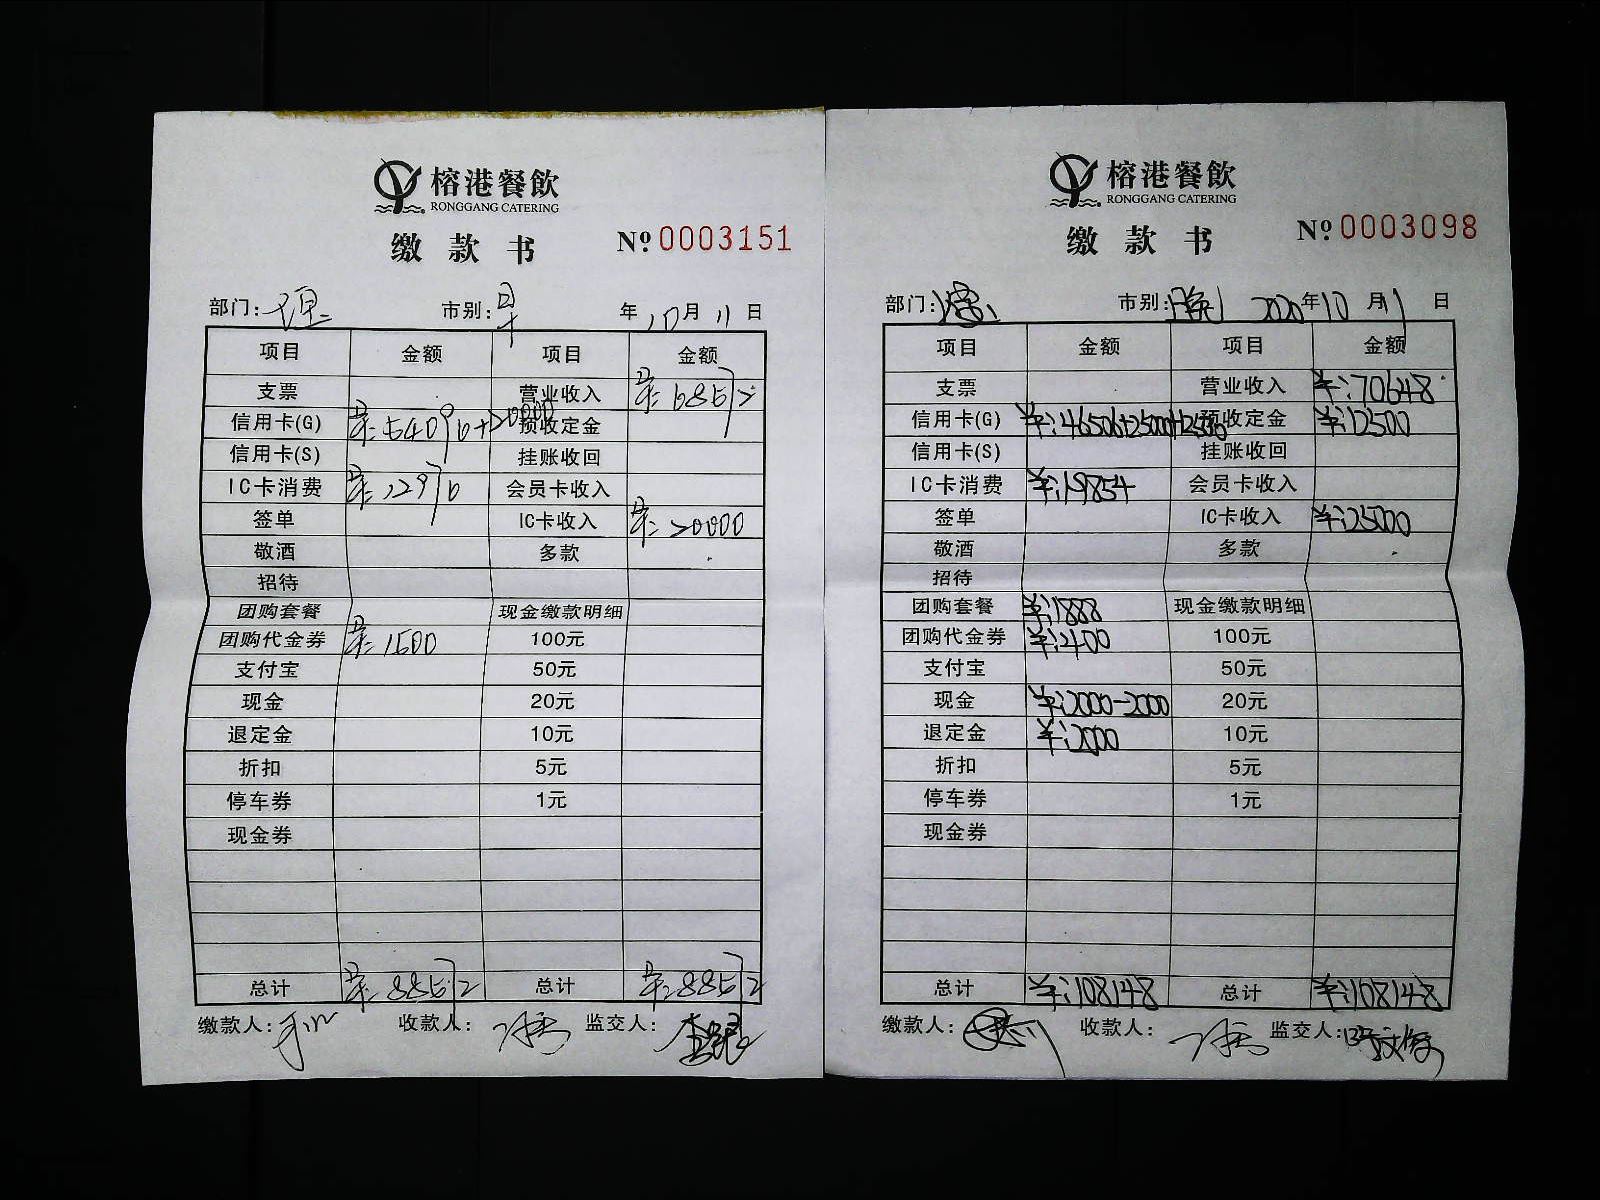 榕港餐飲
RONGGANG CATERING
缴款书
№0003151
部门: 市别:早 年10月11日
项目 金额 项目 金额
支票 营业收入 ¥:68572
信用卡(G) ¥:54096+20000 预收定金
信用卡(S) 挂账收回
IC卡消费 ¥:12976 会员卡收入
签单 IC卡收入 ¥:20000
敬酒 多款
招待
团购套餐 现金缴款明细
团购代金券 ¥:1500 100元
支付宝 50元
现金 20元
退定金 10元
折扣 5元
停车券 1元
现金券
总计 ¥:88572 总计 ¥:88572
缴款人: 收款人: 监交人:
榕港餐飲
RONGGANG CATERING
缴款书
№0003098
部门: 市别:晚 2020年10月11日
项目 金额 项目 金额
支票 营业收入 ¥:70648
信用卡(G) ¥:46506+25000+12500 预收定金 ¥:12500
信用卡(S) 挂账收回
IC卡消费 ¥:19854 会员卡收入
签单 IC卡收入 ¥:25000
敬酒 多款
招待
团购套餐 ¥:1888 现金缴款明细
团购代金券 ¥:400 100元
支付宝 50元
现金 ¥:2000-2000 20元
退定金 ¥:2000 10元
折扣 5元
停车券 1元
现金券
总计 ¥:108148 总计 ¥:108148
缴款人: 收款人: 监交人: